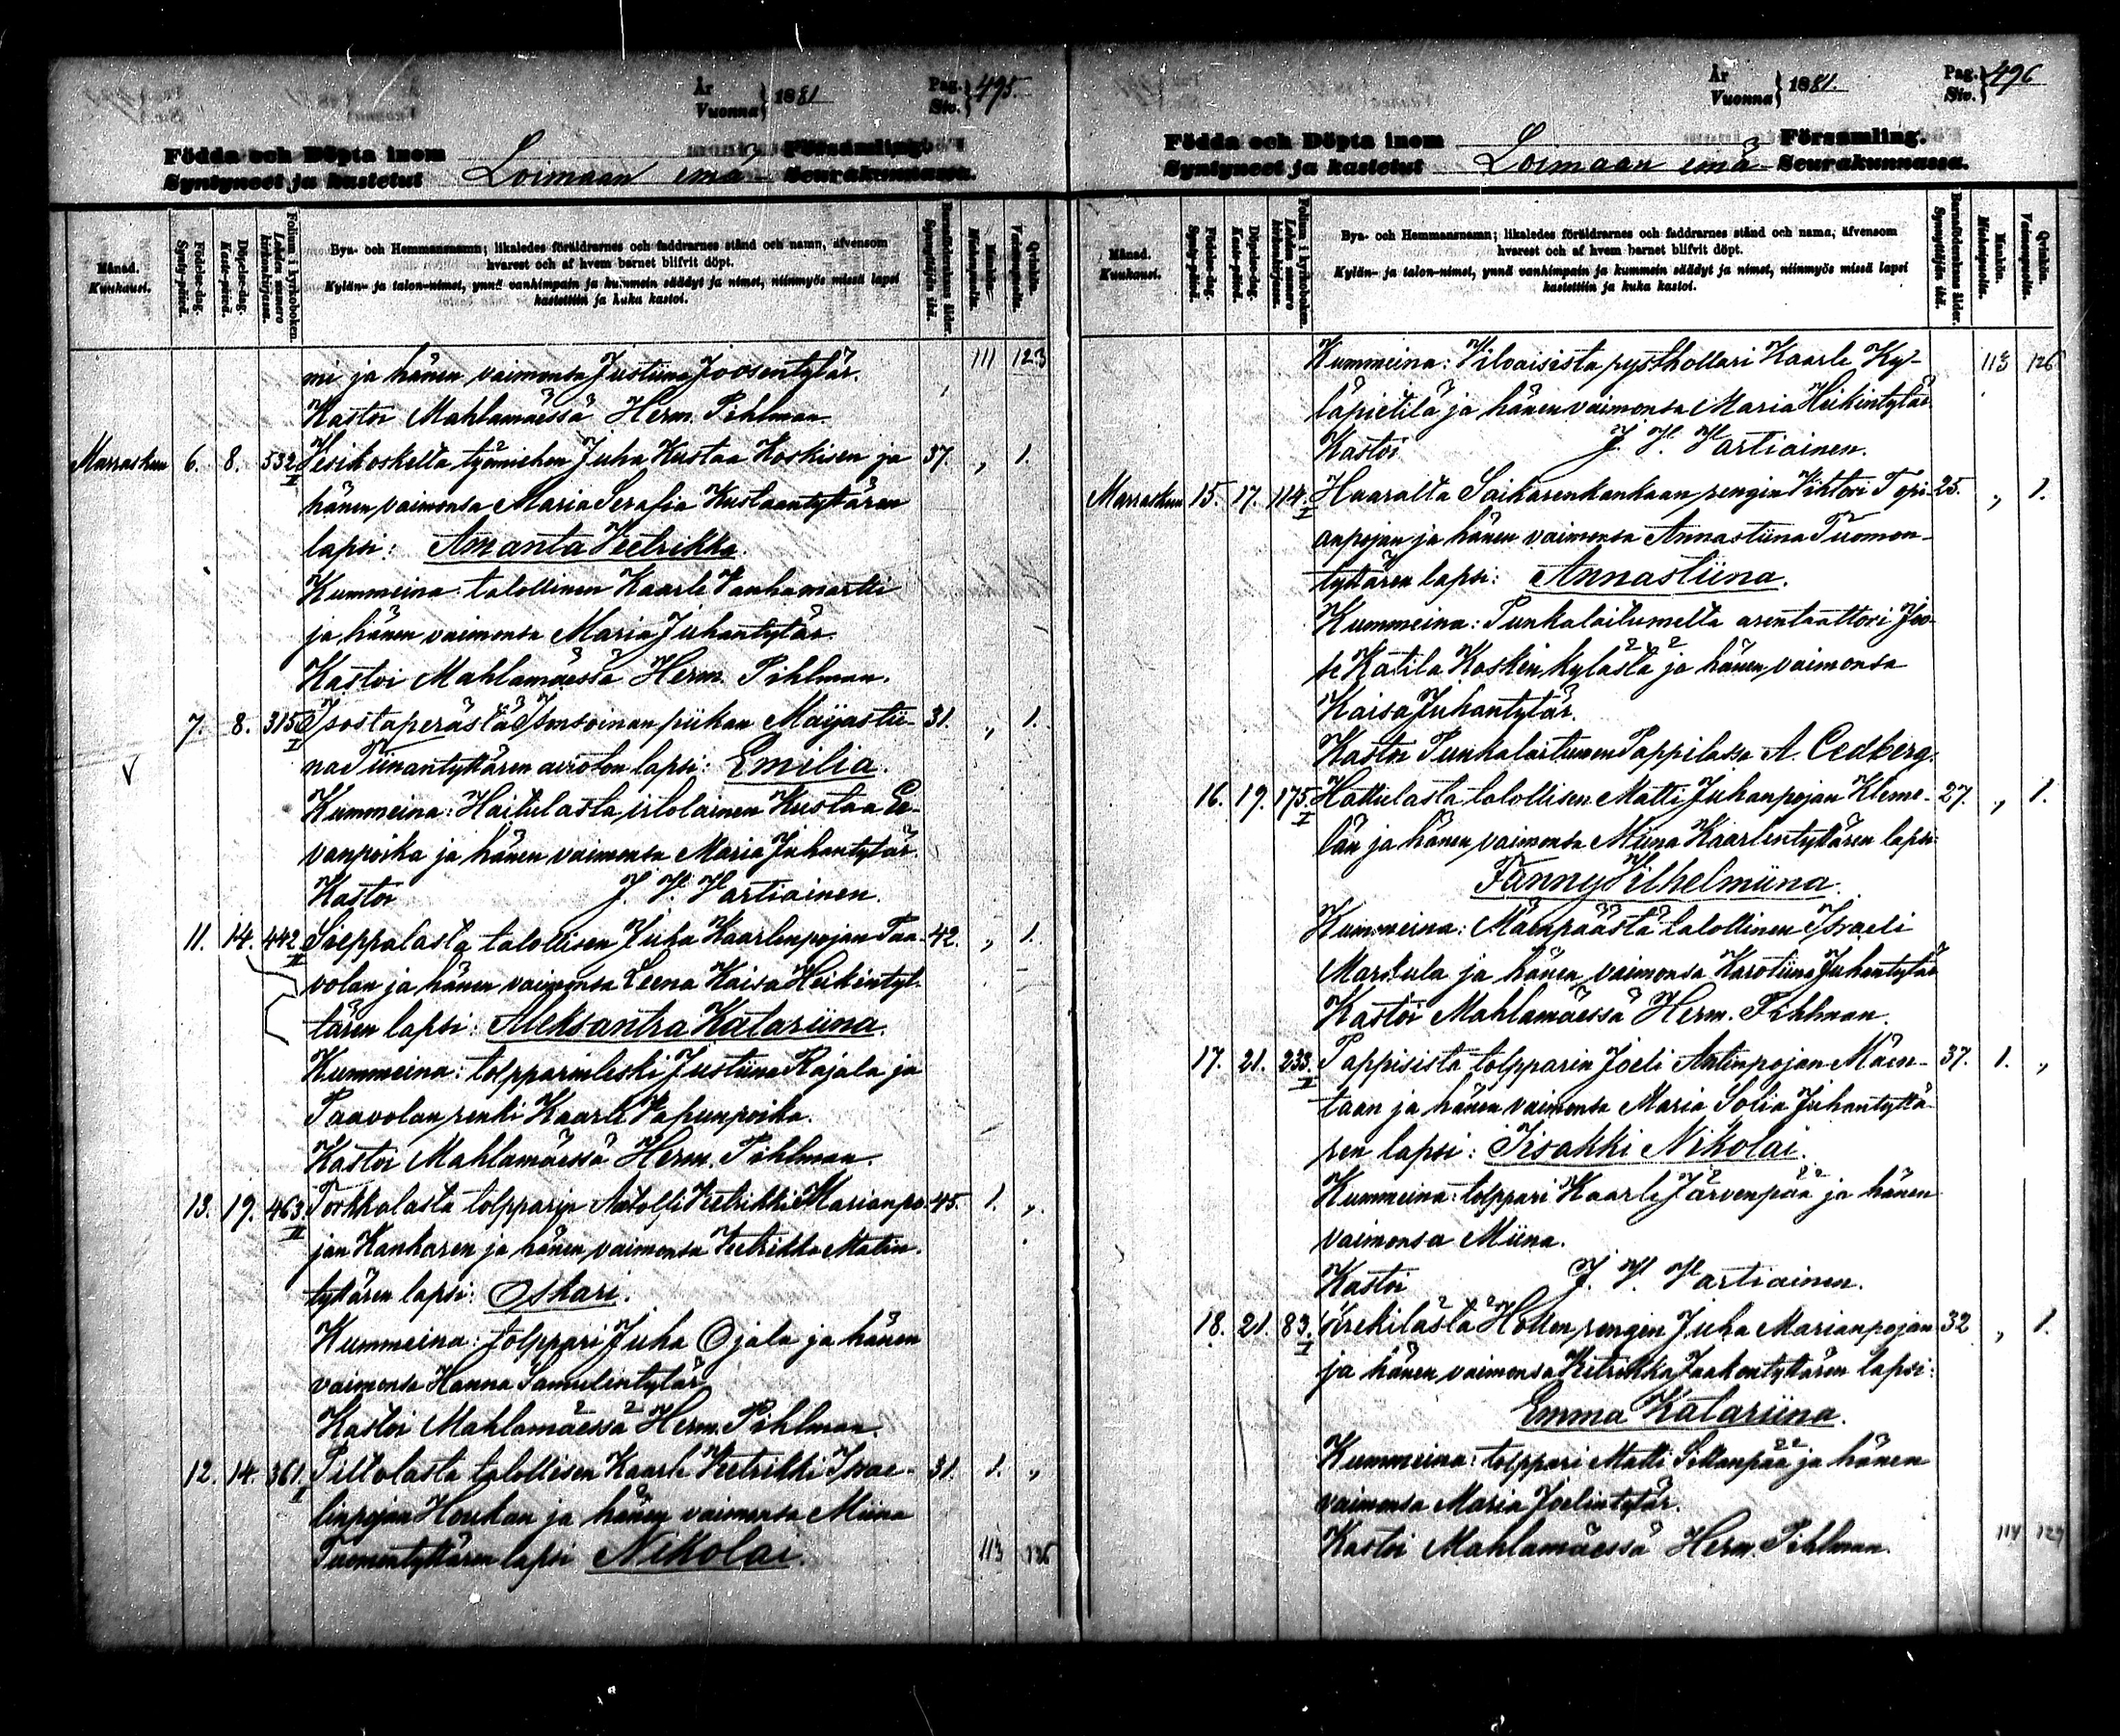 År Vuonna } 1881
Pag. Siv. } 495.
Födda och Döpta inom Församling.
Syntyneet ja kastetut Loimaan emä Seurakunnassa.
Månad. Kuukausi.
Födelse-dag. Synty-päivä.
Döpelse-dag. Kaste-päivä.
Folium i kyrkoboken. Lehden numero kirkonkirjassa.
Bya- och Hemmansnamn; likaledes föräldrarnes och faddrarnes stånd och namn, äfvensom
hvarest och af hvem barnet blifvit döpt.
Kylän- ja talon-nimet, ynnä vanhimpain ja kummein säädyt ja nimet, niinmyös missä lapsi
kastettiin ja kuka kastoi.
Barnaföderskans ålder. Synnyttäjän ikä.
Mankön. Miehenpuolia.
Qvinkön. Vaimonpuolia.
mi ja hänen vaimonsa Justiina Joosentytär. 111 123
Kastoi Mahlamäessä Herm. Pihlman.
Marraskuu 6. 8. 532 II Vesikoskelta työmiehen Juha Kustaa Koskisen ja 37. „ 1.
hänen vaimonsa Maria Serafia Kustaantyttären
lapsi: Amanta Veetrikka.
Kummeina: talollinen Kaarle Vanhamartti
ja hänen vaimonsa Maria Juhantytär.
Kastoi Mahlamäessä Herm. Pihlman.
7. 8. 315 I Isostaperästä Isonsoinan piikan Maijastii- 31. „ 1.
na Tiinantyttären avioton lapsi: Emilia.
Kummeina: Haitulasta itsolainen Kustaa Ee-
vanpoika ja hänen vaimonsa Maria Juhantytär.
Kastoi J. V. Vartiainen.
11. 14. 442 II Sieppalasta talollisen Juha Kaarlenpojan Taa- 42. „ 1.
volan ja hänen vaimonsa Leena Kaisa Heikintyt-
tären lapsi: Aleksantra Katariina.
Kummeina: tolpparinleski Justiina Rajala ja
Paavolan renki Kaarle Vapunpoika.
Kastoi Mahlamäessä Herm. Pihlman.
13. 19. 463 II Torkkalasta tolpparin Aatolfi Veetrikki Marianpo- 45. 1. „
jan Kankaren ja hänen vaimonsa Veetrikka Matin-
tyttären lapsi: Oskari.
Kummeina: tolppari Juha Ojala ja hänen
vaimonsa Hanna Samuelintytär
Kastoi Mahlamäessä Herm. Pihlman.
12. 14. 361. II Piltolasta talollisen Kaarle Veetrikki Israe- 31. 1. „
linpojan Houkan ja hänen vaimonsa Miina
Tuomentyttären lapsi Nikolai. 113 126
År Vuonna } 1881.
Pag. Siv. } 496
Födda och Döpta inom Församling.
Syntyneet ja kastetut Loimaan emä Seurakunnassa.
Månad. Kuukausi.
Födelse-dag. Synty-päivä.
Döpelse-dag. Kaste-päivä.
Folium i kyrkoboken. Lehden numero kirkonkirjassa.
Bya- och Hemmansnamn; likaledes föräldrarnes och faddrarnes stånd och namn, äfvensom
hvarest och af hvem barnet blifvit döpt.
Kylän- ja talon-nimet, ynnä vanhimpain ja kummein säädyt ja nimet, niinmyös missä lapsi
kastettiin ja kuka kastoi.
Barnaföderskans ålder. Synnyttäjän ikä.
Mankön. Miehenpuolia.
Qvinkön. Vaimonpuolia.
Kummeina: Vilvaisista rysthollari Kaarle Ky- 113 126
läpietilä ja hänen vaimonsa Maria Heikintytär
Kastoi J. V. Vartiainen.
Marraskuu 15. 17. 114. I Haaralta Saikarenkankaan rengin Vihtori Topi- 25. „ 1.
anpojan ja hänen vaimonsa Annastiina Tuomon-
tyttären lapsi: Annastiina.
Kummeina: Punkalaitumelta arentaattori Joo-
se Katila Kosken kylästä ja hänen vaimonsa
Kaisa Juhantytär.
Kastoi Punkalaitumen Pappilassa A. Cedberg.
16. 19. 175. I Hattulasta talollisen Matti Juhanpojan Kleme- 27. „ 1.
län ja hänen vaimonsa Miina Kaarlentyttären lapsi:
Fanny Vilhelmiina.
Kummeina: Mäenpäästä talollinen Israeli
Martula ja hänen vaimonsa Karoliina Juhantytär
Kastoi Mahlamäessä Herm. Pihlman.
17. 21. 233. I Pappisista tolpparin Joeli Antinpojan Mäen- 37. 1. „
taan ja hänen vaimonsa Maria Sofia Juhantyttä-
ren lapsi: Iisakki Nikolai.
Kummeina: tolppari Kaarle Järvenpää ja hänen
vaimonsa Miina.
Kastoi J. V. Vartiainen.
18. 21. 83. I Krekilästä Hollon rengin Juha Marianpojan 32 „ 1.
ja hänen vaimonsa Veetrikka Jaakontyttären lapsi:
Emma Katariina.
Kummeina: tolppari Matti Sillanpää ja hänen
vaimonsa Maria Joelintytär.
Kastoi Mahlamäessä Herm. Pihlman. 114 129